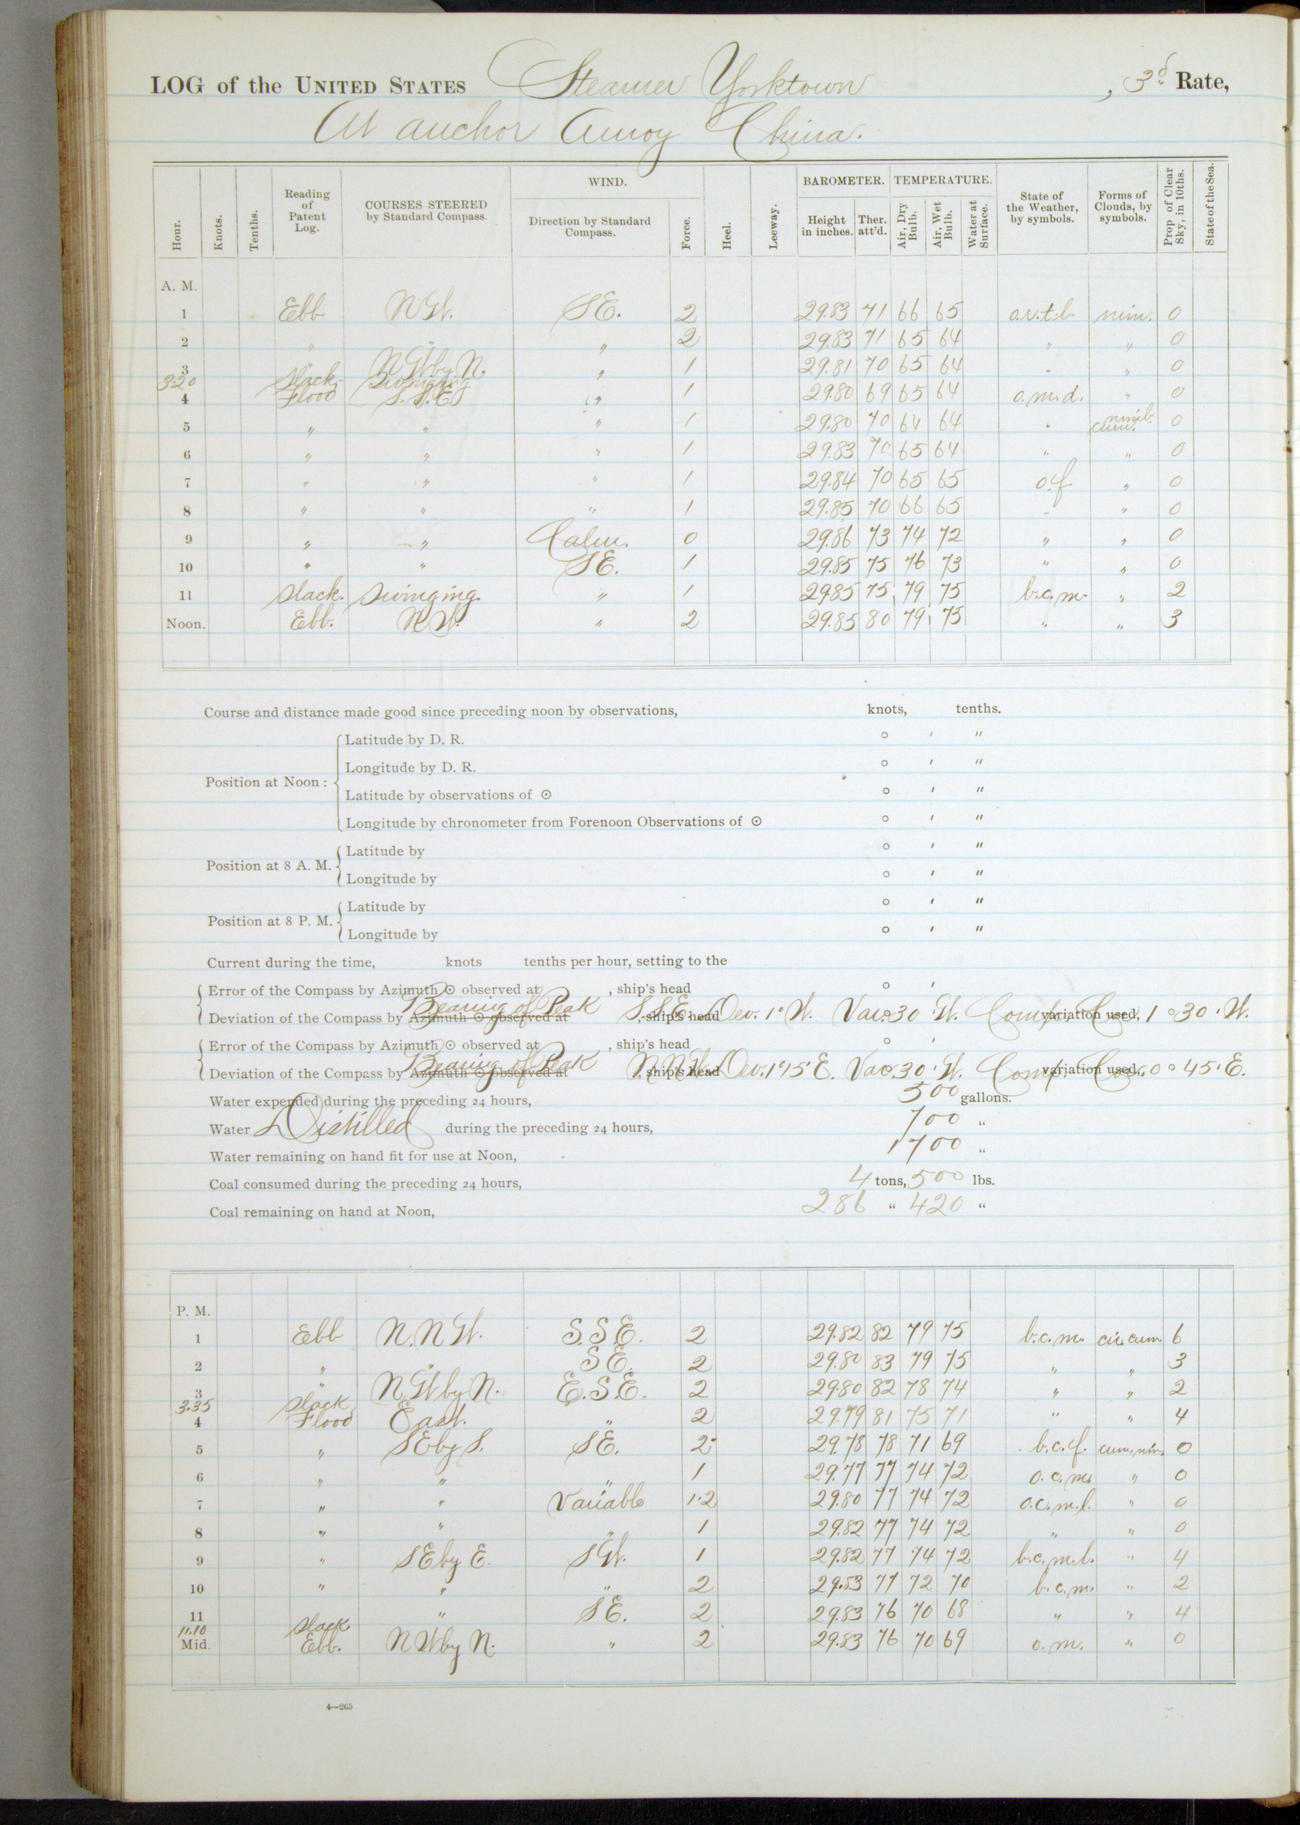 LOG of the UNITED STATES Steamer Yorktown, 3d Rate,
At anchor Amoy China.
Hour. Knots. Tenths. Reading of Patent Log. COURSES STEERED by Standard Compass. WIND. Direction by Standard Compass. Force. Heel. Leeway. BAROMETER. Height in inches. Ther. att'd. TEMPERATURE. Air, Dry Bulb. Air, Wet Bulb. Water at Surface. State of the Weather, by symbols. Forms of Clouds, by symbols. Prop. of Clear Sky, in 10ths. State of the Sea.
A. M.
1 Ebb NW. SE. 2 29.83 71 66 65 o.r.t.l. nim. 0
2 " " " 2 29.83 71 65 64 " " 0
3 " NW by N. " 1 29.81 70 65 64 " " 0
3 20 Slack. Swinging
4 Flood S.S.E. " 1 29.80 69 65 64 o.m.d. " 0
5 " " " 1 29.80 70 64 64 " cum. 0
6 " " " 1 29.83 70 65 64 " " 0
7 " " " 1 29.84 70 65 65 o.f. " 0
8 " " " 1 29.85 70 66 65 " " 0
9 " " Calm. 0 29.86 73 74 72 " " 0
10 " " SE. 1 29.85 75 76 73 " " 0
11 Slack. Swinging. " 1 29.85 75 79 75 b.c.m. " 2
Noon. Ebb. NW. " 2 29.85 80 79 75 " " 3
Course and distance made good since preceding noon by observations, knots, tenths.
Position at Noon: Latitude by D. R. ° ′ ″
Longitude by D. R. ° ′ ″
Latitude by observations of ⊙ ° ′ ″
Longitude by chronometer from Forenoon Observations of ⊙ ° ′ ″
Position at 8 A. M. Latitude by ° ′ ″
Longitude by ° ′ ″
Position at 8 P. M. Latitude by ° ′ ″
Longitude by ° ′ ″
Current during the time, knots tenths per hour, setting to the
Error of the Compass by Azimuth ⊙ observed at , ship's head ° ′
Deviation of the Compass by Azimuth ⊙ observed at Bearing of Peak , ship's head S.S.E. Dev. 1° W. Var. 30′ W. variation used, Comp. Cor. 1° 30′ W.
Error of the Compass by Azimuth ⊙ observed at , ship's head ° ′
Deviation of the Compass by Azimuth ⊙ observed at Bearing of Peak , ship's head N.NW. Dev. 1°15′ E. Var. 30′ W. variation used, Comp. Cor. 0° 45′ E.
Water expended during the preceding 24 hours, 500 gallons.
Water Distilled during the preceding 24 hours, 700 "
Water remaining on hand fit for use at Noon, 1700 "
Coal consumed during the preceding 24 hours, 4 tons, 500 lbs.
Coal remaining on hand at Noon, 286 " 420 "
P. M.
1 Ebb N.NW. S.SE. 2 29.82 82 79 75 b.c.m. cir. cum. 6
2 " " SE. 2 29.80 83 79 75 " " 3
3 " NW by N. E.S.E. 2 29.80 82 78 74 " " 2
3.35 Slack
4 Flood East. " 2 29.79 81 75 71 " " 4
5 " SE by S. SE. 2 29.78 78 71 69 b.c.f. cum. nim. 0
6 " " " 1 29.77 77 74 72 o.c.m. " 0
7 " " Variable 1.2 29.80 77 74 72 o.c.m.l. " 0
8 " " " 1 29.82 77 74 72 " " 0
9 " SE by E. SW. 1 29.82 77 74 72 b.c.m.l. " 4
10 " " " 2 29.83 77 72 70 b.c.m. " 2
11 " SE. 2 29.83 76 70 68 " " 4
11.10 Slack
Mid. Ebb. NW by N. " 2 29.83 76 70 69 o.m. " 0
4—265